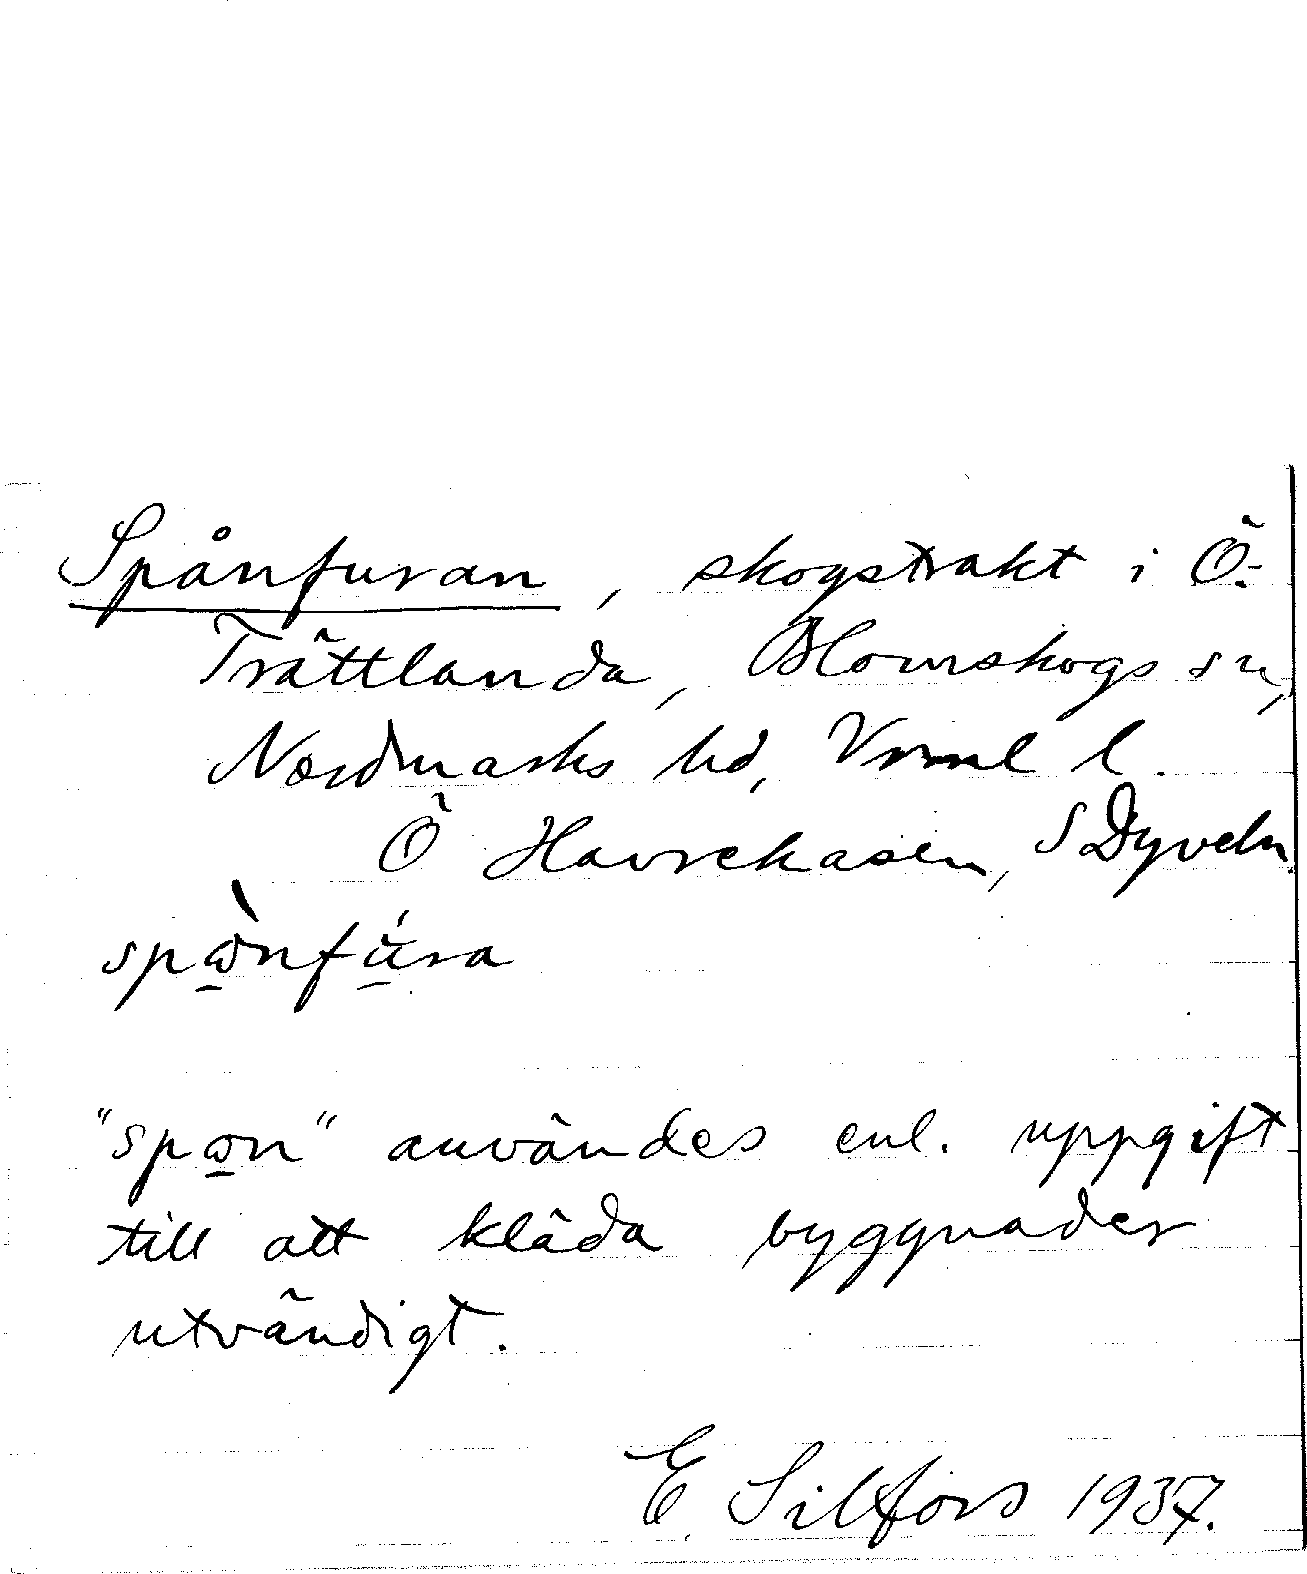 Spånfuran, skogstrakt i Ö.
Trättlanda, Blomskogs sn,
Nordmarks hd, Vrml l.
Ö Havrekasen, S Dyveln
"spɷn" användes enl. uppgift
till att kläda byggnader
utvändigt.
E. Silfors 1937.